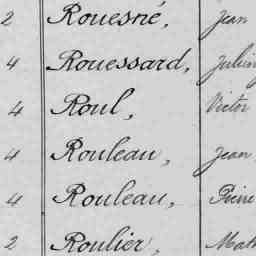 2 Rouesné, Jean
4 Rouessard, Julien
4 Roul, Victor
4 Rouleau, Jean
4 Rouleau, Pierre
2 Roulier, Math